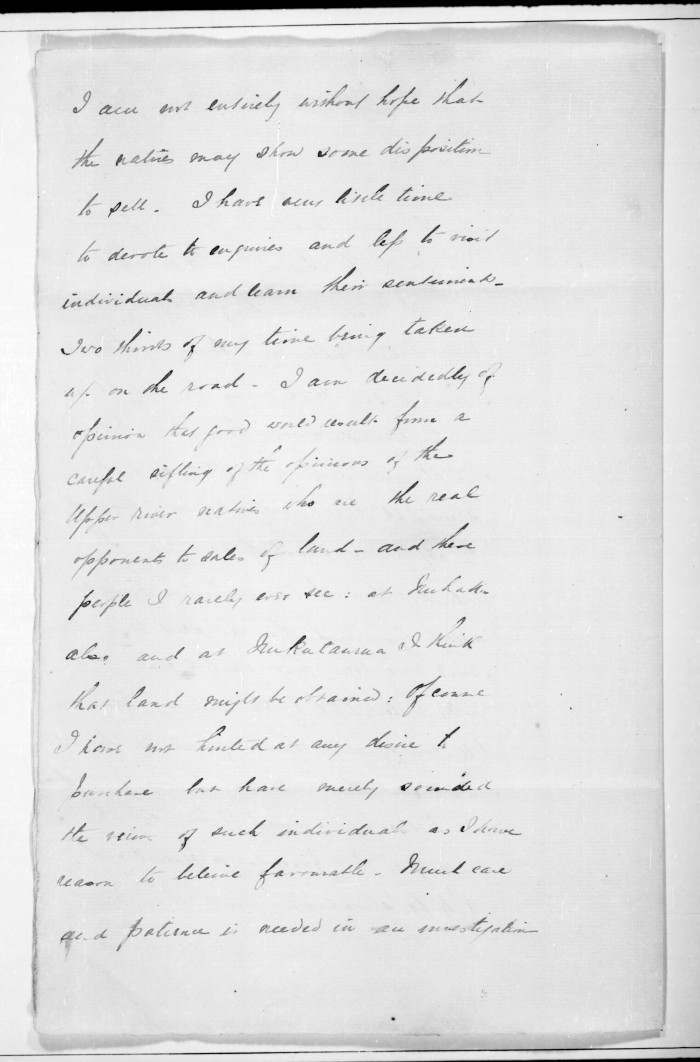 I am not entirely without hope that
the natives may show some disposition
to sell. I have very little time
to devote to enquiries and less to visit
individuals and learn their sentiments -
Two thirds of my time being taken
up on the road - I am decidedly of
opinion that good would result from a
careful sifting of the opinions of the
Upper river natives who are the real
opponents to sales of land - and these
people I rarely ever see: at
also and at I think
that land might be obtained: Of course
I have not hinted at any desire to
purchase but have merely sounded
the views of such individuals as I have
reason to beleive favourable - Much care
and patience is needed in an investigation